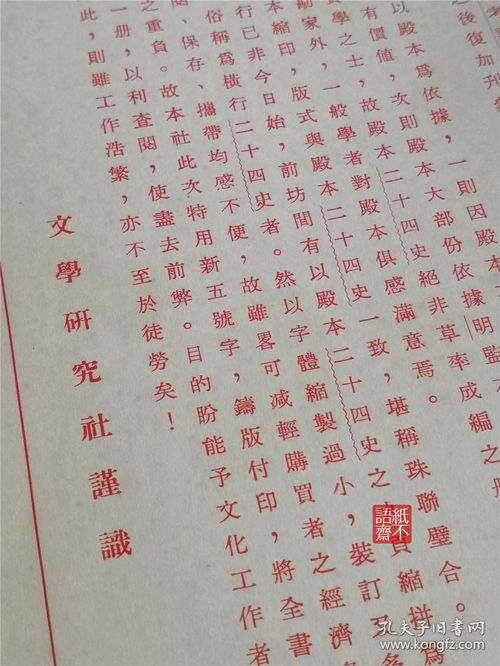 之後復加升
以殿本爲依據，一則因殿
有價值，次則殿本大部份依據明監
學之士，故殿本二十四史絕非草率成編之册
家外，一般學者對殿本俱感滿意焉。
本縮印，版式與殿本二十四史一致，堪稱珠聯璧合。
行已非今日始，前坊間有以殿本二十四史之頁縮拼爲
俗稱爲橫行二十四史者。然以字體縮製過小，裝訂又多
閱、保存、攜帶均感不便，故雖畧可減輕購買者之經濟
之重負。故本社此次特用新五號字，鑄版付印，將全書
一册，以利查閱，使盡去前弊。目的盼能予文化工作者
此，則雖工作浩繁，亦不至於徒勞矣！
文學研究社謹識
紙不語齋
孔夫子旧书网